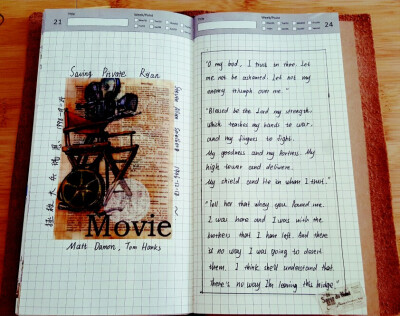 21
Saving Private Ryan
拯救大兵瑞恩
Movie
Matt Damon, Tom Hanks
24
"O my God, I trust in thee. Let
me not be ashamed. Let not my
enemy triumph over me."
"Blessed be the Lord my strength.
which teaches my hands to war.
and my fingers to fight.
My goodness and my fortress. My
high tower and deliverer.
My shield and He in whom I trust."
"Tell her that when you found me.
I was here and I was with the
brothers that I have left. And there
is no way I was going to desert
them. I think she'll understand that.
There's no way I'm leaving this bridge."